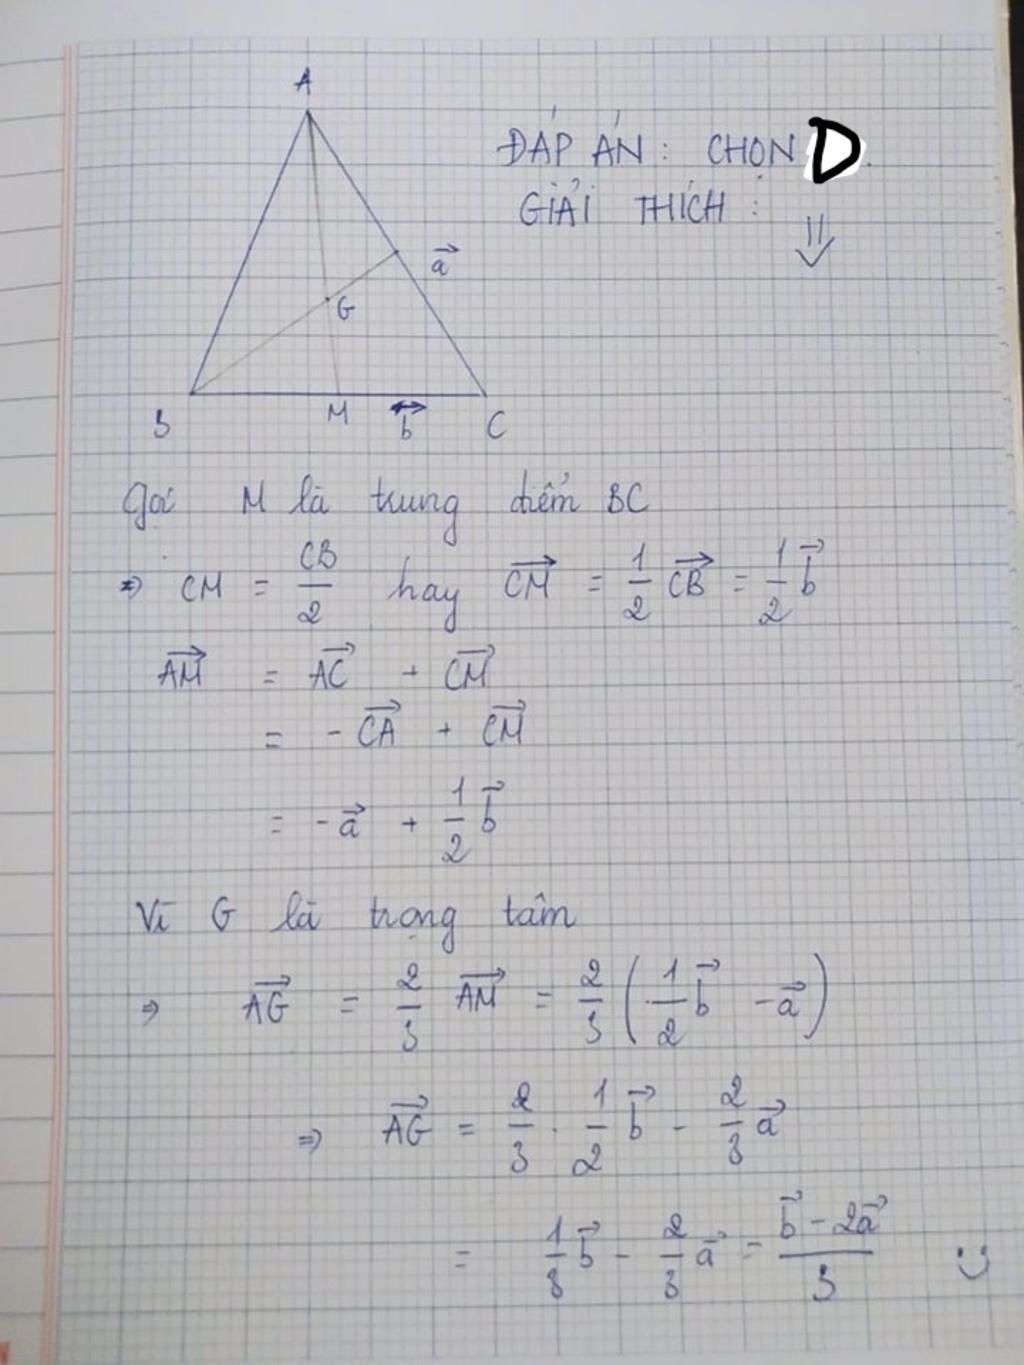 A
ĐÁP ÁN: CHỌN D.
GIẢI THÍCH:
⇓
a⃗
G
B M b⃗ C
Gọi M là trung điểm BC
⇒ CM = CB/2 hay CM⃗ = 1/2 CB⃗ = 1/2 b⃗
AM⃗ = AC⃗ + CM⃗
= -CA⃗ + CM⃗
= -a⃗ + 1/2 b⃗
Vì G là trọng tâm
⇒ AG⃗ = 2/3 AM⃗ = 2/3 (1/2 b⃗ - a⃗)
⇒ AG⃗ = 2/3 . 1/2 b⃗ - 2/3 a⃗
= 1/3 b⃗ - 2/3 a⃗ = (b⃗ - 2a⃗)/3